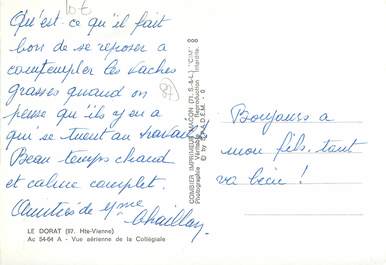 Qu'est-ce qu'il fait
bon de se reposer a
contempler les vaches
grasses quand on
pense qu'ils y en a
qui se tuent au travail.
Beau temps chaud
et calme complet.
Amitiés de
Chaillan.
LE DORAT (87. Hte-Vienne)
Ac 54-64 A - Vue aérienne de la Collégiale
(87)
COMBIER IMPRIMEUR MACON (71. S.-&-L.) "CIM"
Photographie Véritable - Reproduction Interdite.
© by S.P.A.D.E.M. - 0
Bonjours a
mon fils, tout
va bien !